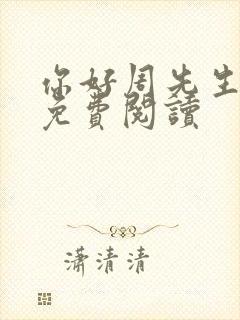 你好周先生
免費閱讀
瀟清清